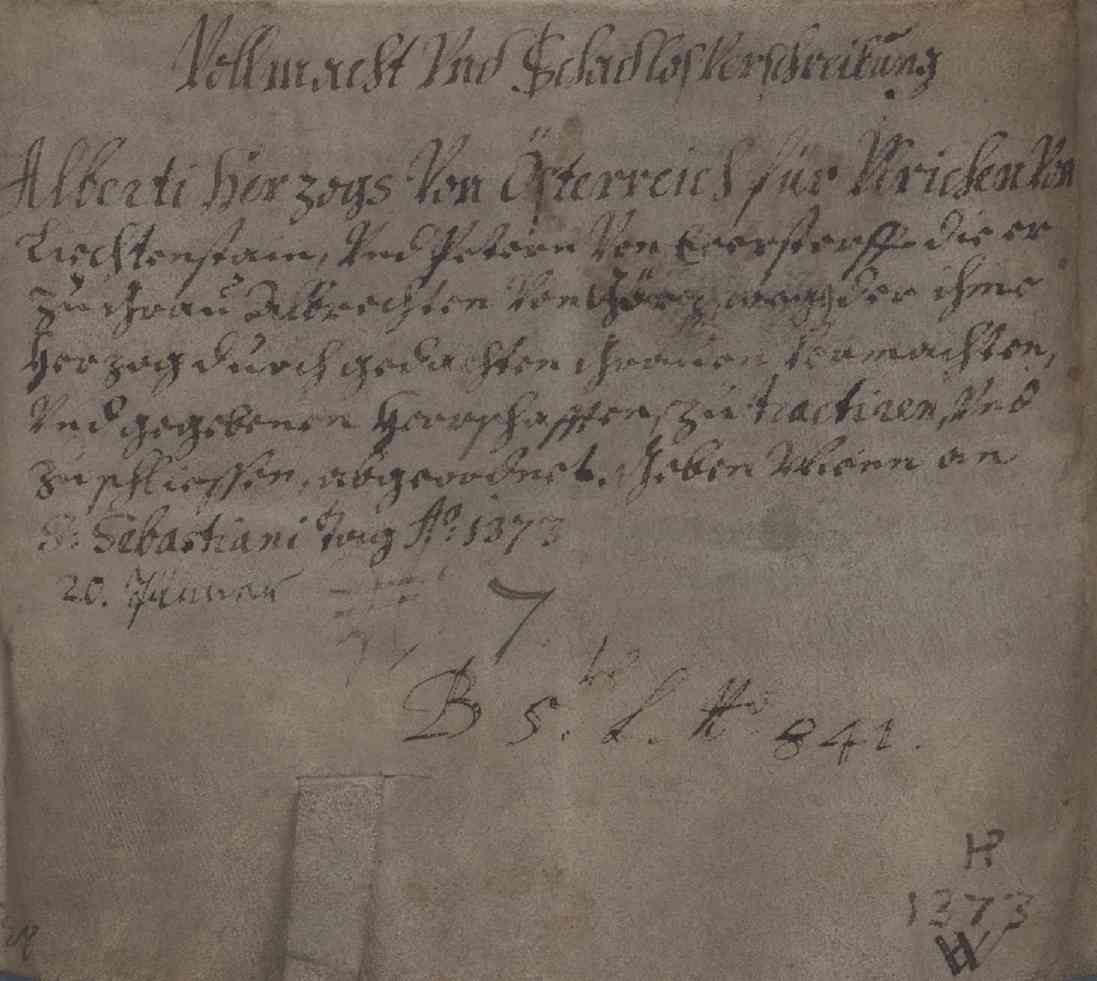 Vollmacht Vnd SchadlosVerschreibung
Alberti Herzogs Von Österreich für Vlrichen Von
Liechtenstain, Vnd Petern Von Eberstorff die er
zu Grau Albrechten Von Görz, wegen der ihme
Herzog durch gedachten Grauen Vermachten,
Vnd gegebenen Herrschafften, zu tractiren, Vnd
zu schliessen, abgeordnet. Geben Wienn an
S: Sebastiani Tag Ao. 1373
20. Januar
7
B 5. L. No 841.
H
1373